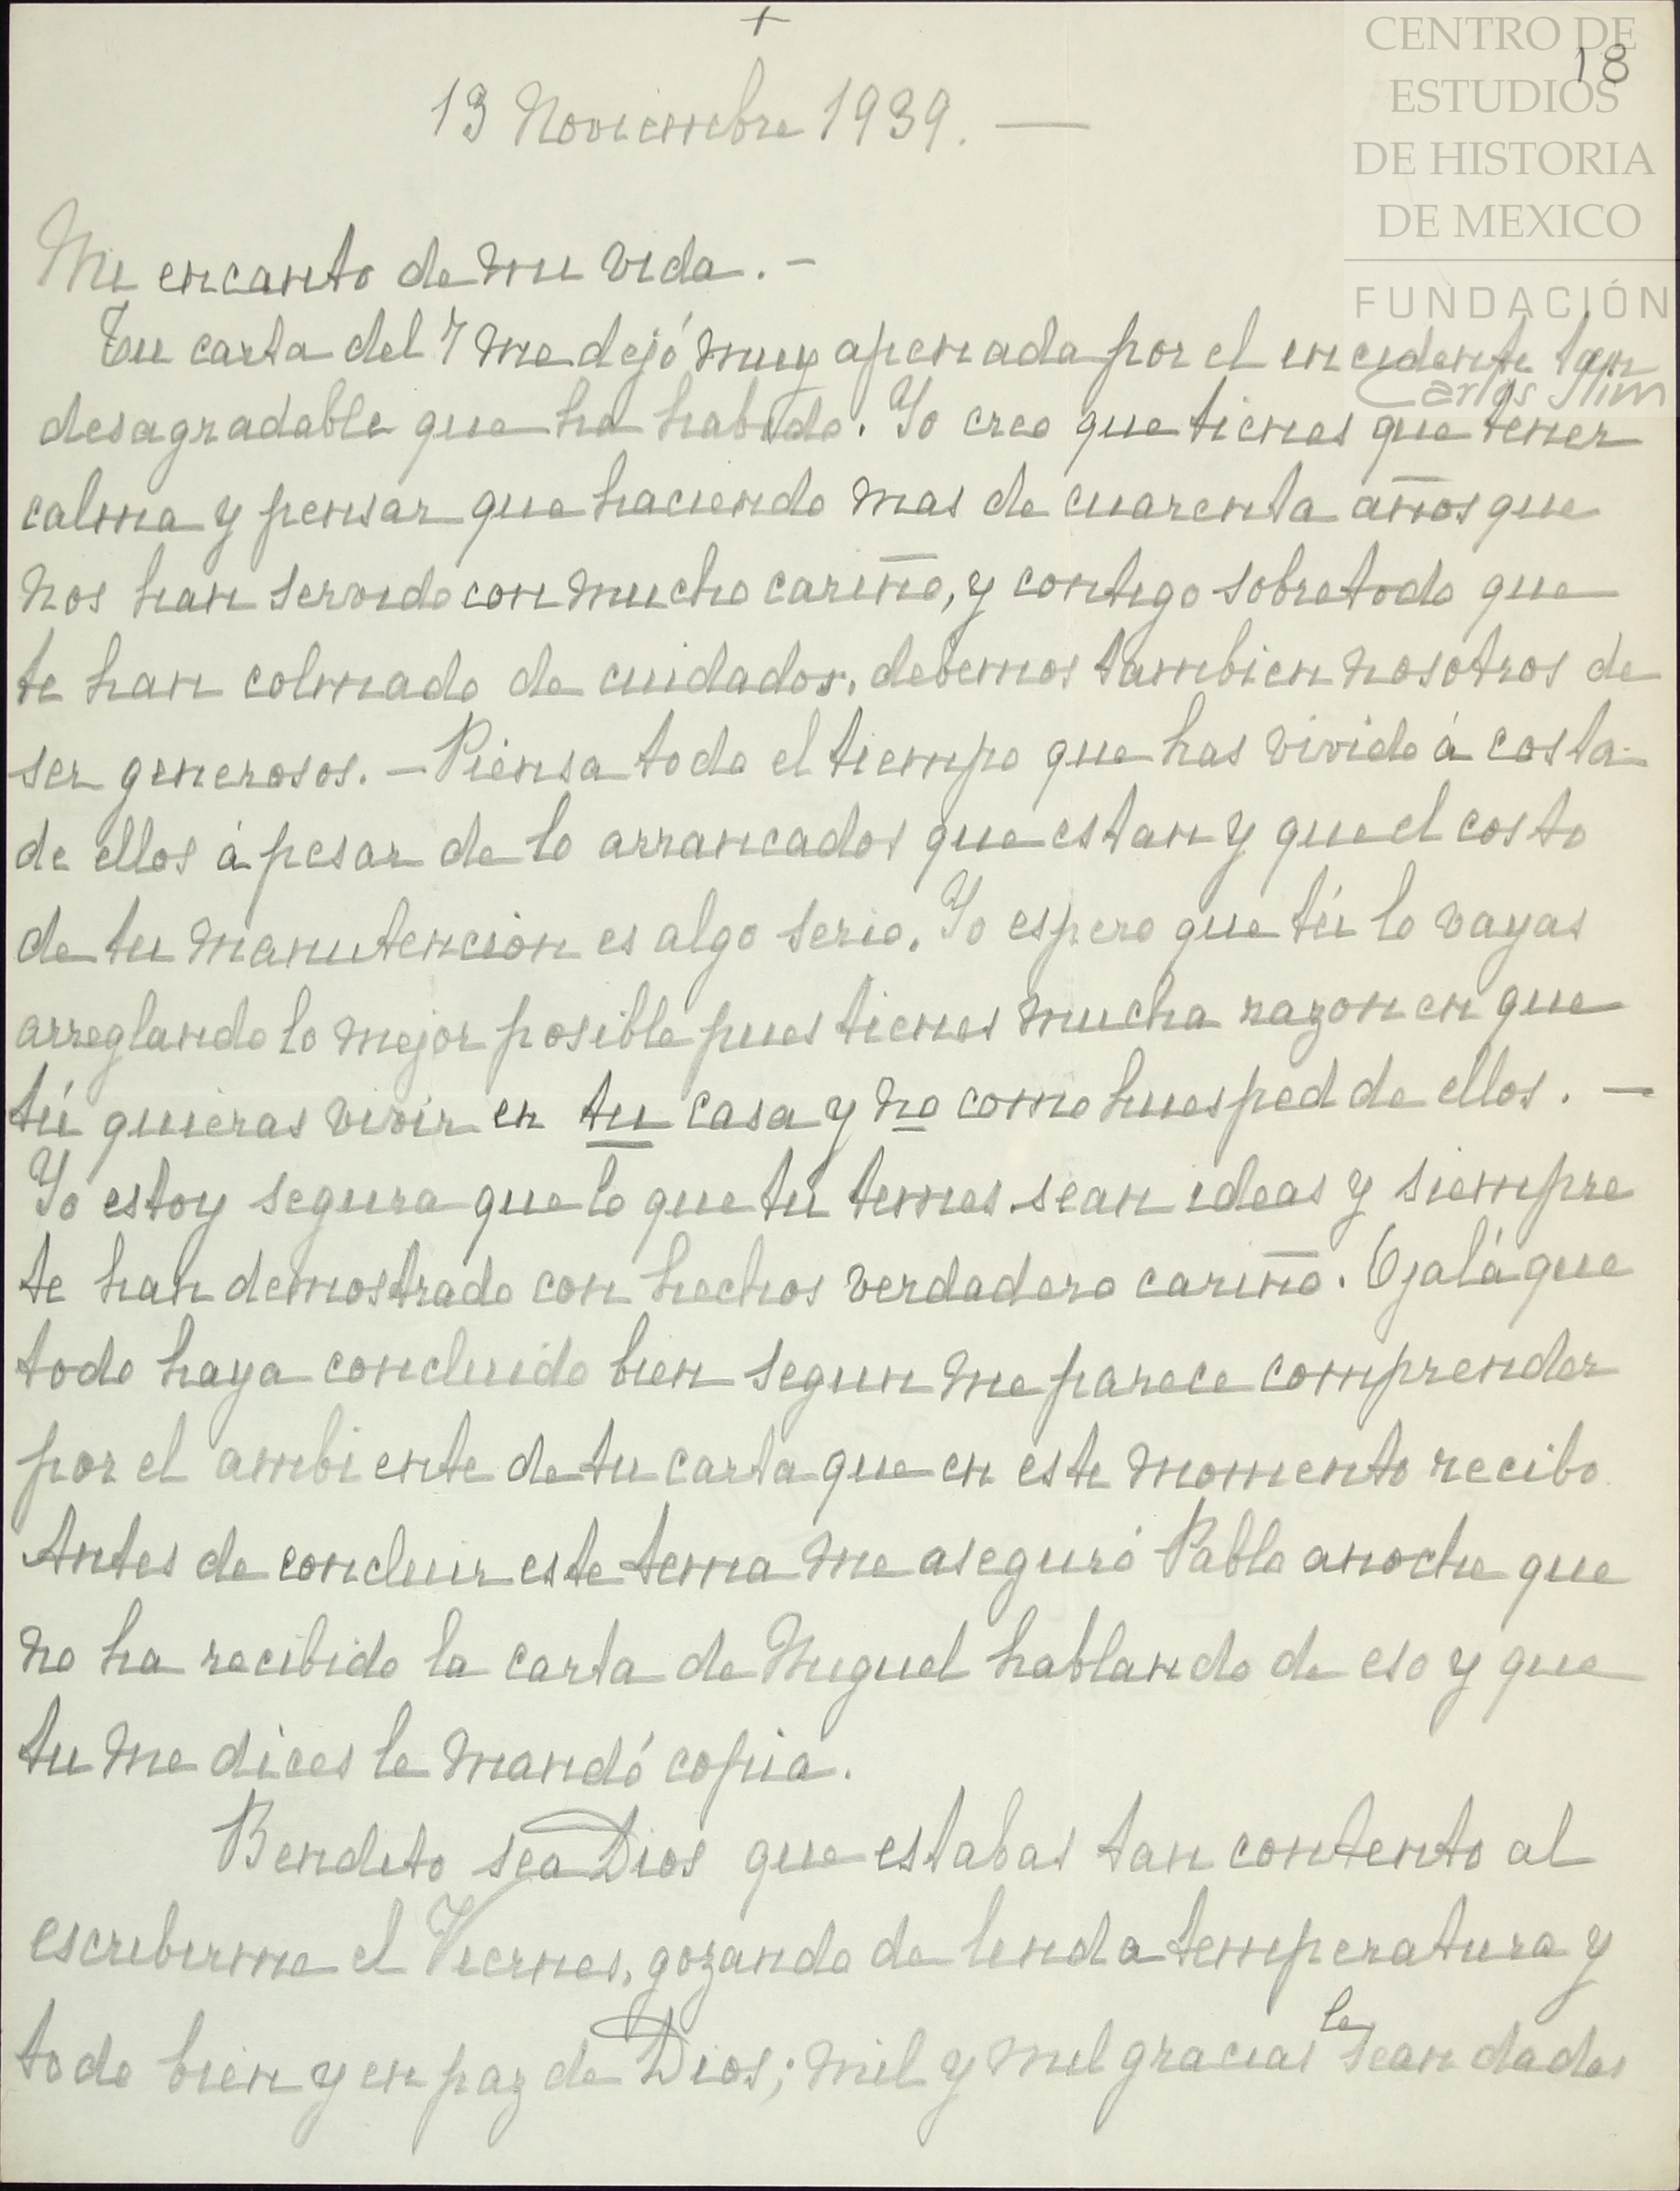 +
18
CENTRO DE
ESTUDIOS
DE HISTORIA
DE MEXICO
FUNDACIÓN
Carlos Slim
13 Noviembre 1939. —
Mi encanto de mi vida. –
Tu carta del 7 me dejó muy apenada por el incidente tan
desagradable que ha habido. Yo creo que tienes que tener
calma y pensar que haciendo mas de cuarenta años que
nos han servido con mucho cariño, y contigo sobretodo que
te han colmado de cuidados, debemos tambien nosotros de
ser generosos. – Piensa todo el tiempo que has vivido á costa
de ellos á pesar de lo arrancados que estan y que el costo
de tu manutención es algo serio. Yo espero que tú lo vayas
arreglando lo mejor posible pues tienes mucha razon en que
tú quieras vivir en tu casa y no como huesped de ellos. —
Yo estoy segura que lo que tú temes sean ideas y siempre
te han demostrado con hechos verdadero cariño. Ojalá que
todo haya concluido bien segun me parece comprender
por el ambiente de tu carta que en este momento recibo
Antes de concluir este tema me aseguró Pablo anoche que
no ha recibido la carta de Miguel hablando de eso y que
tu me dices le mandó copia.
Bendito sea Dios que estabas tan contento al
escribirme el Viernes, gozando de linda temperatura y
todo bien y en paz de Dios; mil y mil gracias le sean dadas